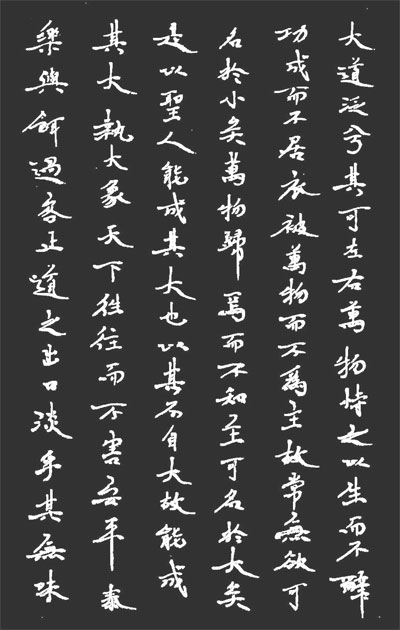 大道泛兮其可左右萬物恃之以生而不辭
功成而不居衣被萬物而不爲主故常無欲可
名於小矣萬物歸焉而不知主可名於大矣
是以聖人能成其大也以其不自大故能成
其大執大象天下往往而不害安平泰
樂與餌過客止道之出口淡乎其無味